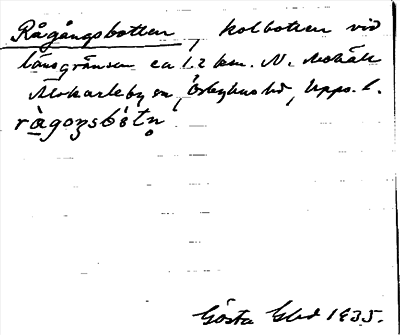 Rågångsbotten, kolbotten vid
länsgränsen ca 1.2 km. N.
Älvkarleby sn, Örbyhus hd, Upps. l.
rågoŋsbótn̥
Gösta Gled 1935.